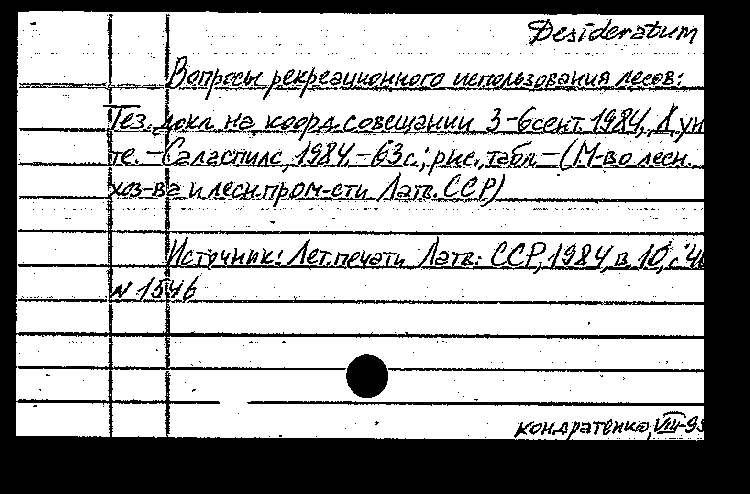 Desideratum
Вопросы рекреационного использования лесов:
Тез. докл. на коорд. совещании 3-6 сент. 1984,
те. - Саласпилс, 1984. - 63 с.; рис., табл. - (М-во лесн.
хоз-ва и лесн. пром-сти Латв. ССР)
Источник: Лет. печати Латв. ССР, 1984, в. 10, с.
N 1546
Кондратенко, VIII-93